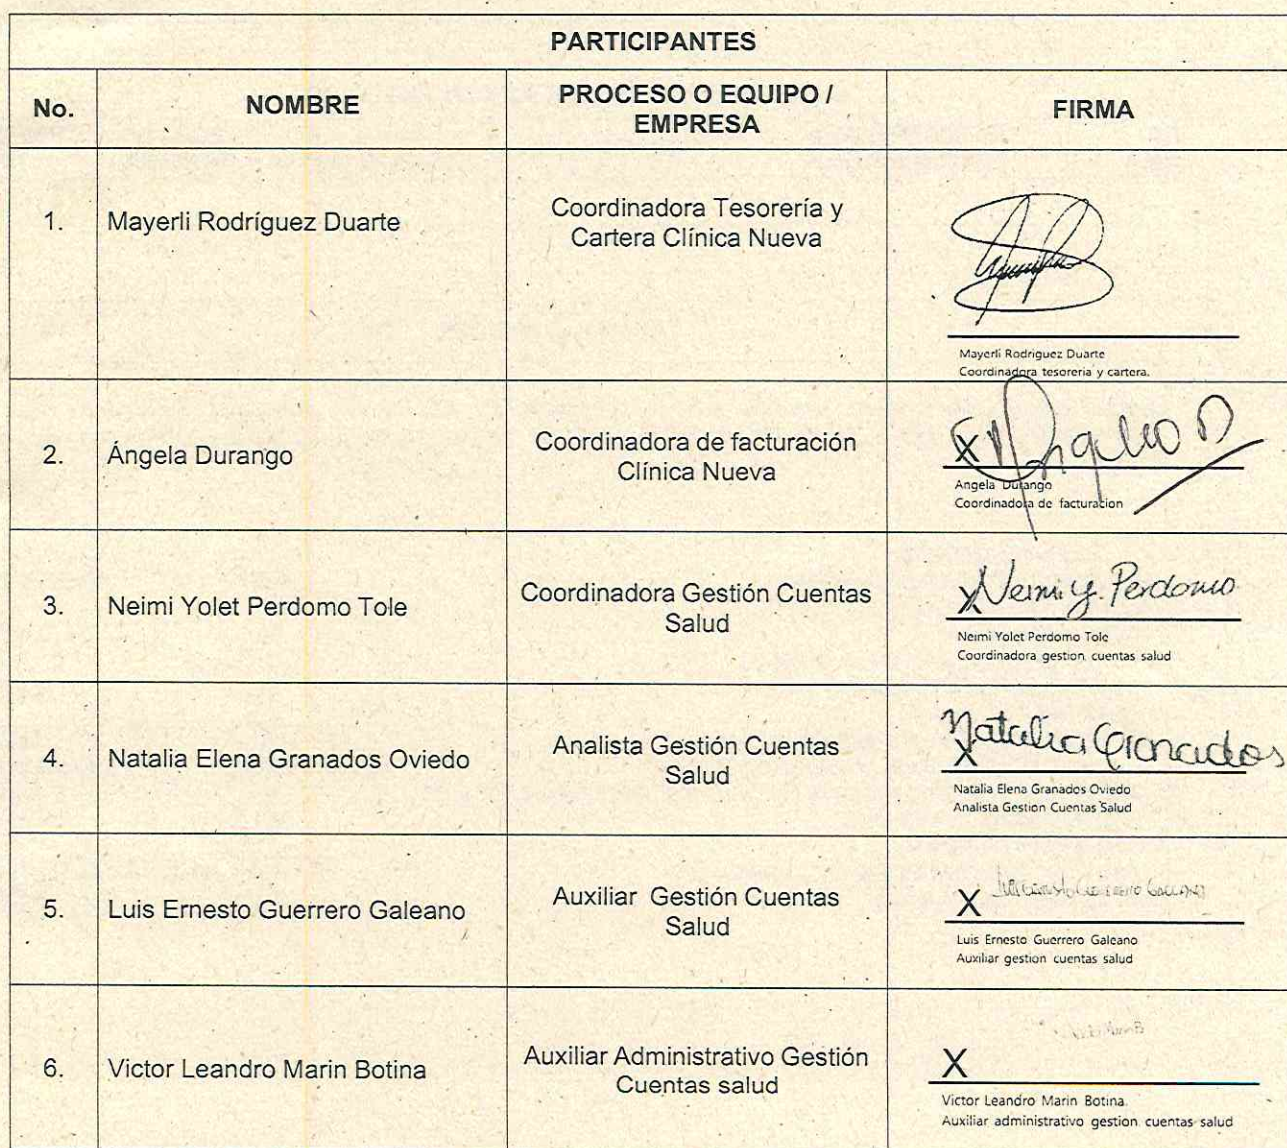 PARTICIPANTES
No. NOMBRE PROCESO O EQUIPO / EMPRESA FIRMA
1. Mayerli Rodríguez Duarte Coordinadora Tesorería y Cartera Clínica Nueva
Mayerli Rodriguez Duarte
Coordinadora tesoreria y cartera.
2. Ángela Durango Coordinadora de facturación Clínica Nueva
X Angela D
Angela Durango
Coordinadora de facturacion
3. Neimi Yolet Perdomo Tole Coordinadora Gestión Cuentas Salud
X Neimi y. Perdomo
Neimi Yolet Perdomo Tole
Coordinadora gestion cuentas salud
4. Natalia Elena Granados Oviedo Analista Gestión Cuentas Salud
Natalia Granados
X
Natalia Elena Granados Oviedo
Analista Gestion Cuentas Salud
5. Luis Ernesto Guerrero Galeano Auxiliar Gestión Cuentas Salud
X Luis Ernesto Guerrero Galeano
Luis Ernesto Guerrero Galeano
Auxiliar gestion cuentas salud
6. Victor Leandro Marin Botina Auxiliar Administrativo Gestión Cuentas salud
X
Victor Leandro Marin Botina
Auxiliar administrativo gestion cuentas salud